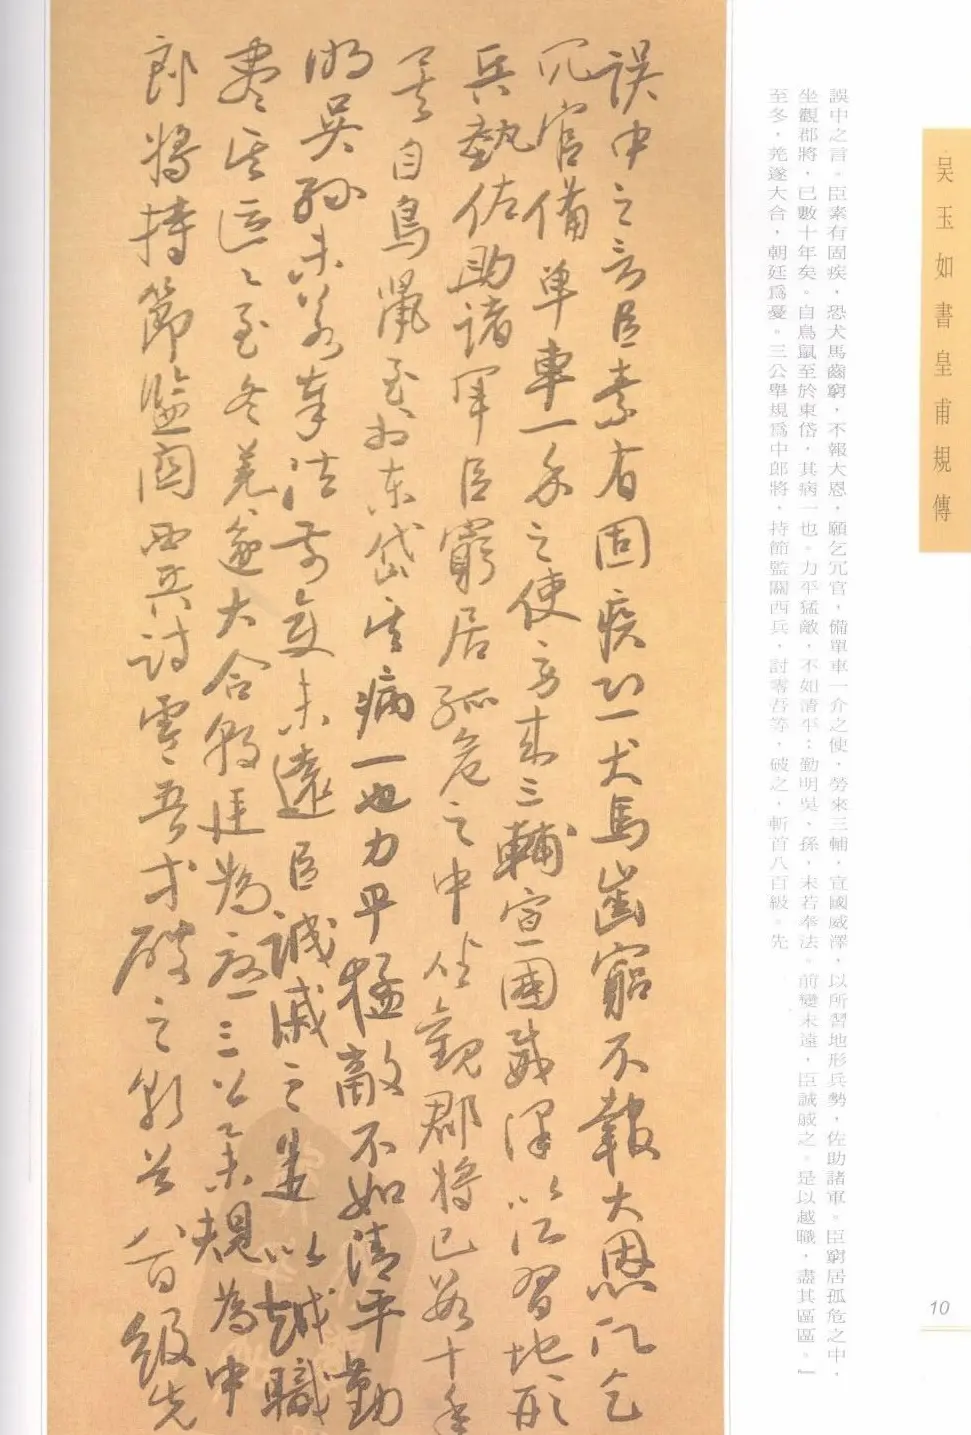 吳玉如書皇甫規傳
10
誤中之言。臣素有固疾，恐犬馬齒窮，不報大恩，願乞冗官，備單車一介之使，勞來三輔，宣國威澤，以所習地形兵勢，佐助諸軍。臣窮居孤危之中，
坐觀郡將，已數十年矣。自鳥鼠至於東岱，其病一也。力平猛敵，不如清平；勤明吳、孫，未若奉法。前變未遠，臣誠戚之。是以越職，盡其區區。」
至冬，羌遂大合，朝廷爲憂。三公舉規爲中郎將，持節監關西兵，討零吾等，破之，斬首八百級。先
誤中之言臣素有固疾恐犬馬齒窮不報大恩願乞
冗官備單車一介之使勞來三輔宣國威澤以所習地形
兵勢佐助諸軍臣窮居孤危之中坐觀郡將已數十年
矣自鳥鼠至於東岱其病一也力平猛敵不如清平勤
明吳孫未若奉法前變未遠臣誠戚之是以越職
盡其區々至冬羌遂大合朝廷為憂三公舉規為中
郎將持節監關西兵討零吾等破之斬首八百級先